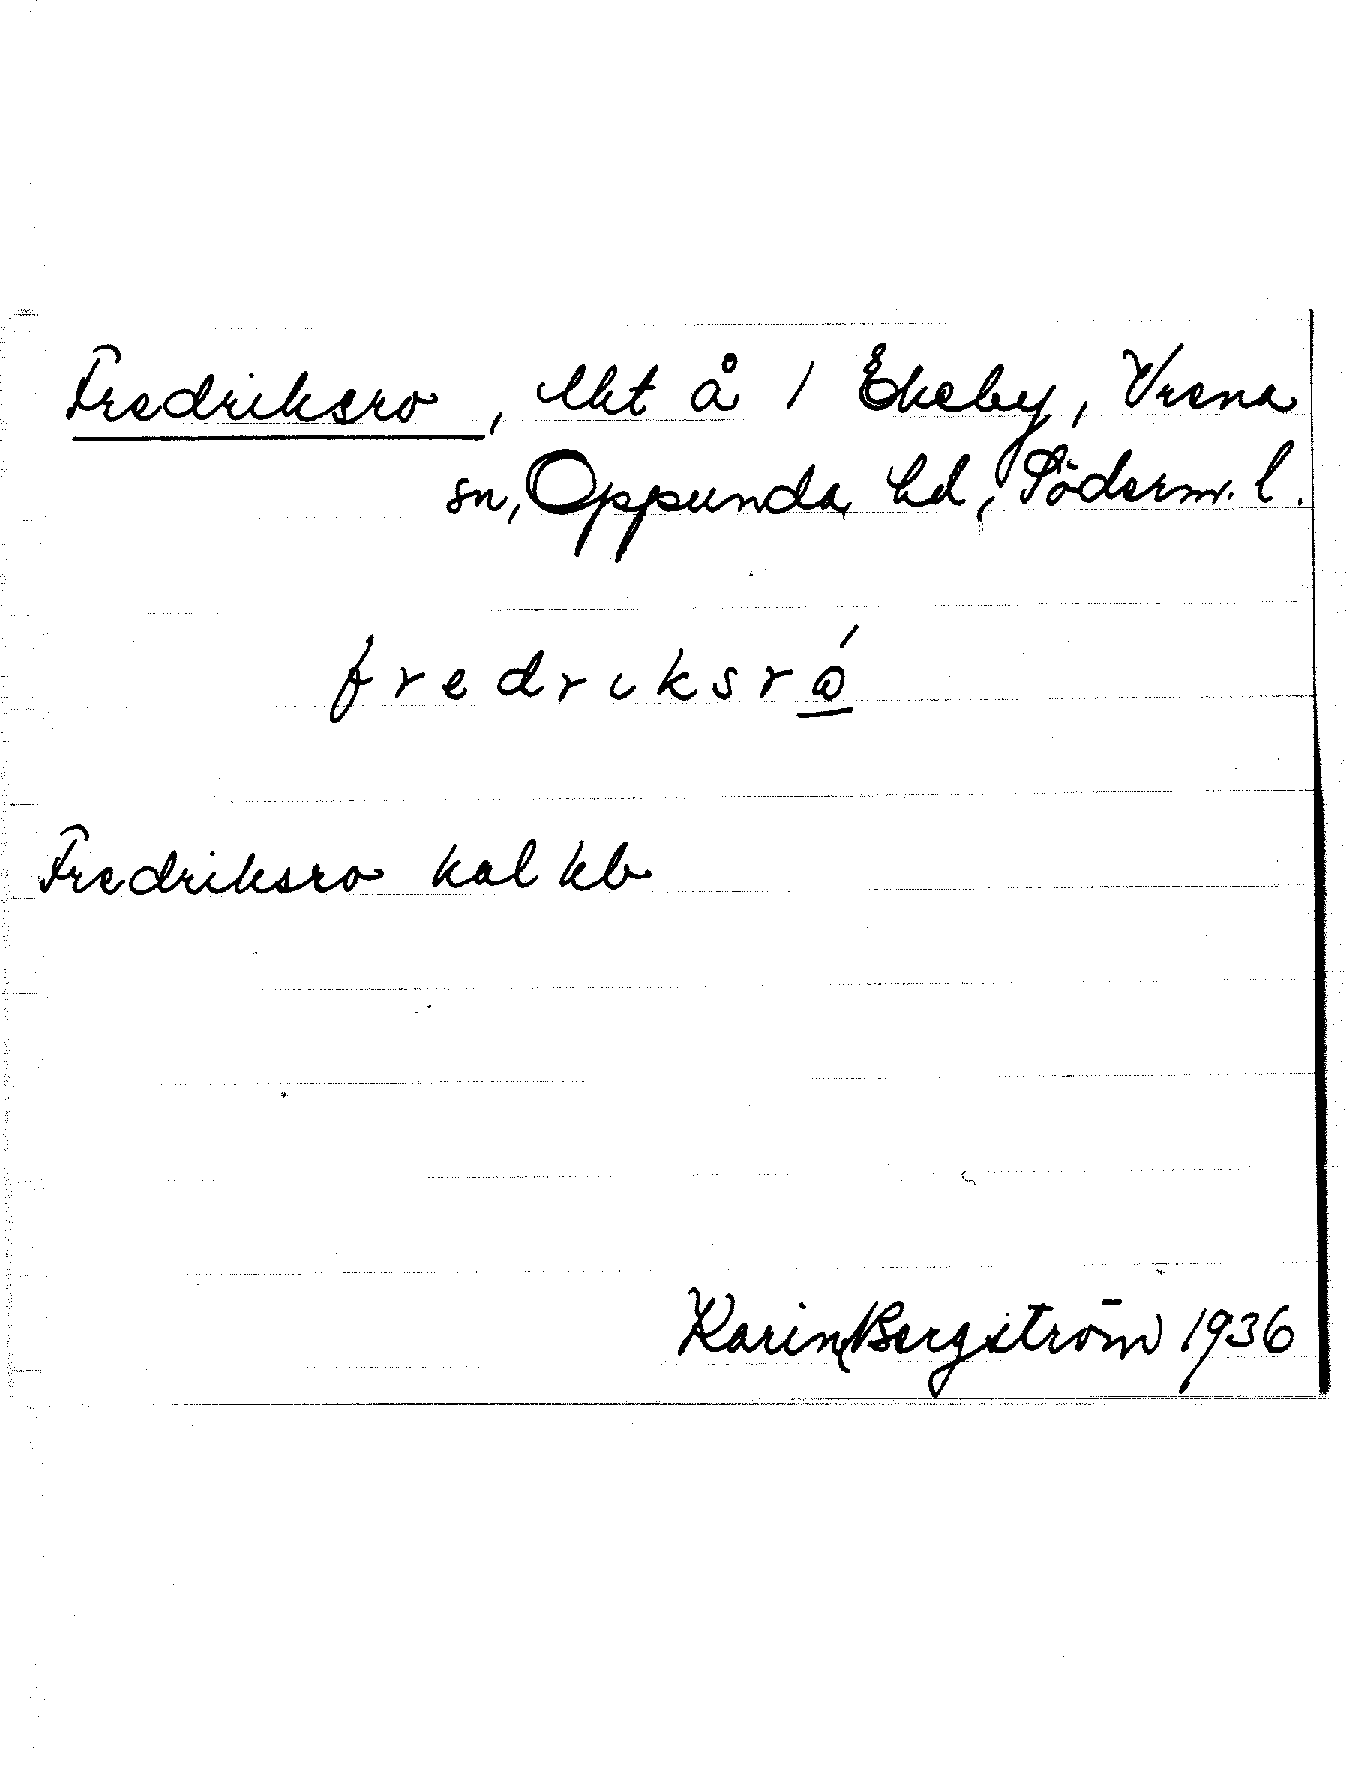 Fredriksro, lht å 1 Ekeby, Vrena
sn, Oppunda hd, Söderm. l.
fredriksró
Fredriksro kal kb
Karin Bergström 1936